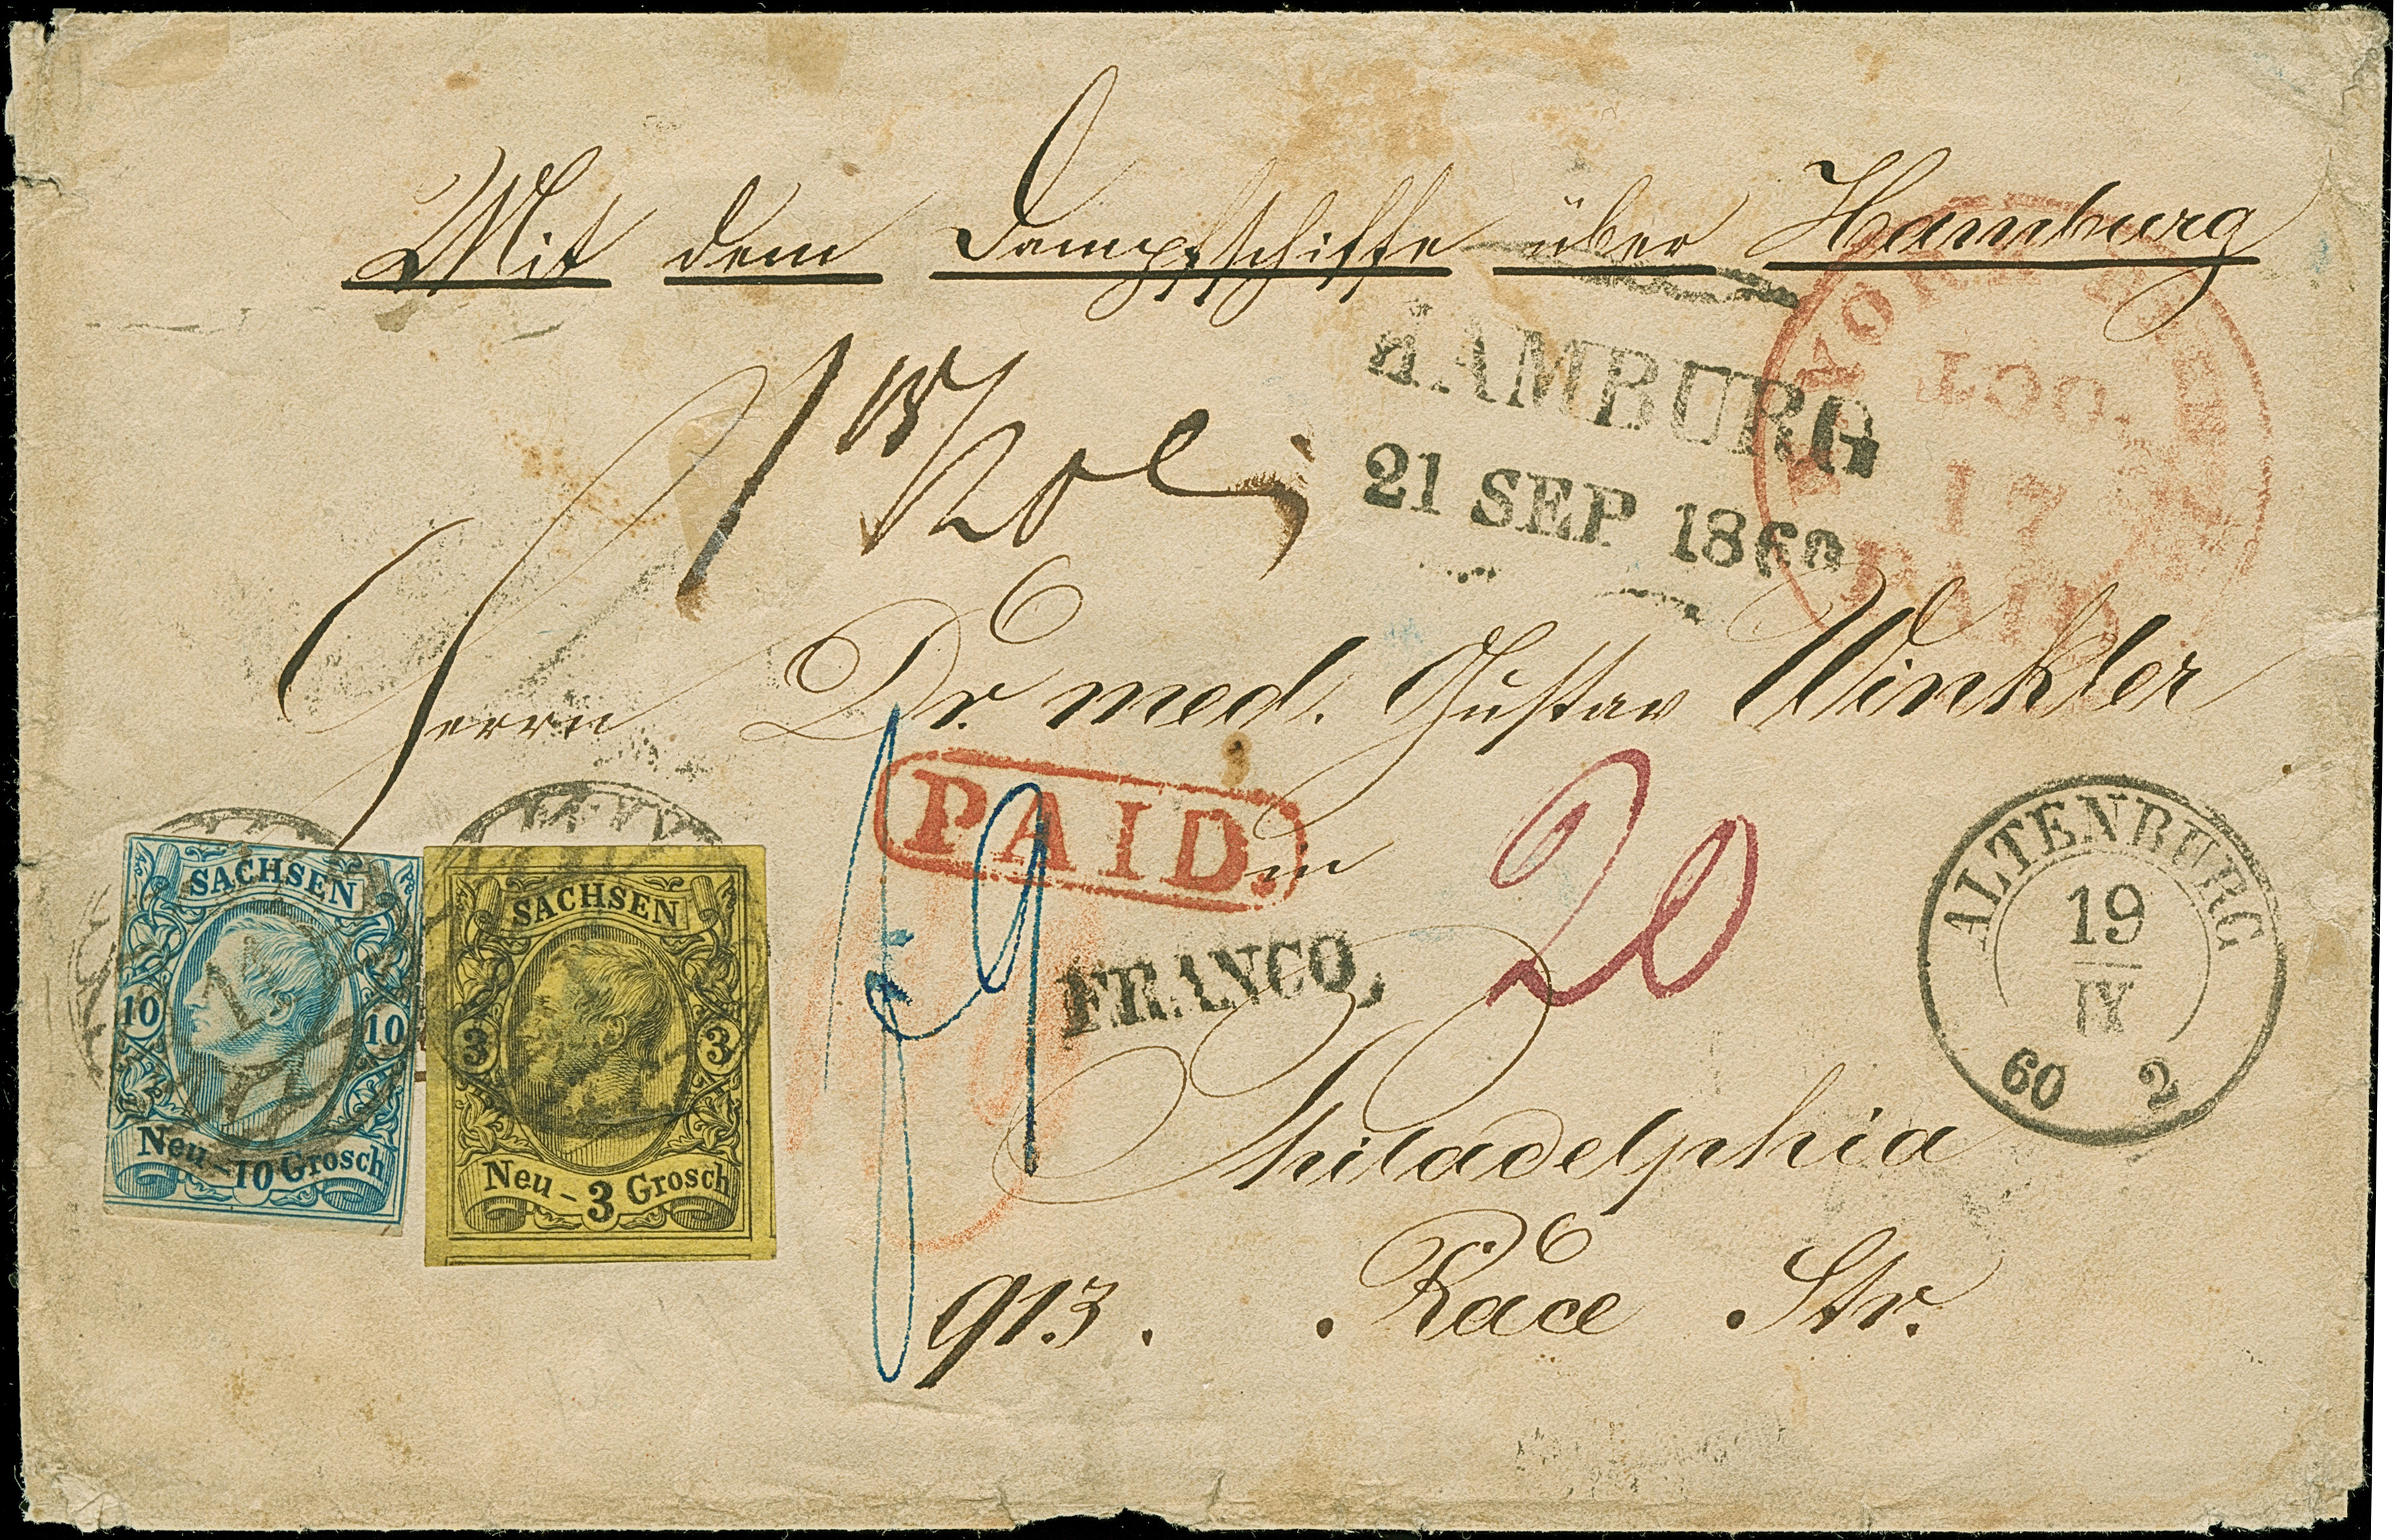 Mit dem Dampfschiffe über Hamburg
HAMBURG
21 SEP 1860
YORK
OCT
17
PAID
Herrn Dr. med. Gustav Winkler
PAID.
in
20
FRANCO,
Philadelphia
913. Race Str.
ALTENBURG
19
IX
60 2
SACHSEN
10 10
Neu-10 Grosch
SACHSEN
3 3
Neu-3 Grosch